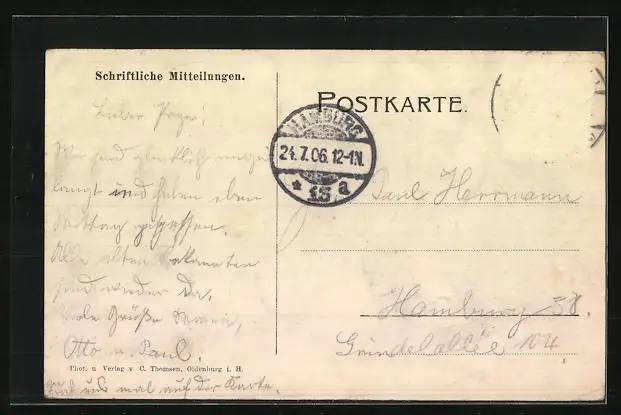 Schriftliche Mitteilungen.
POSTKARTE.
HAMBURG
24.7.06.12-1N.
* 13 a
Lieber Papa!
Wir sind glücklich angelangt
und haben eben
Mittag gegessen.
Alle alten Bekannten
sind wieder da.
Viele Grüße Mama,
Otto u. Paul.
Phot. u Verlag v. C. Thomsen, Oldenburg i. H.
uns mal auf der Karte.
Paul Herrmann
Hamburg 38.
Grindelallee 104